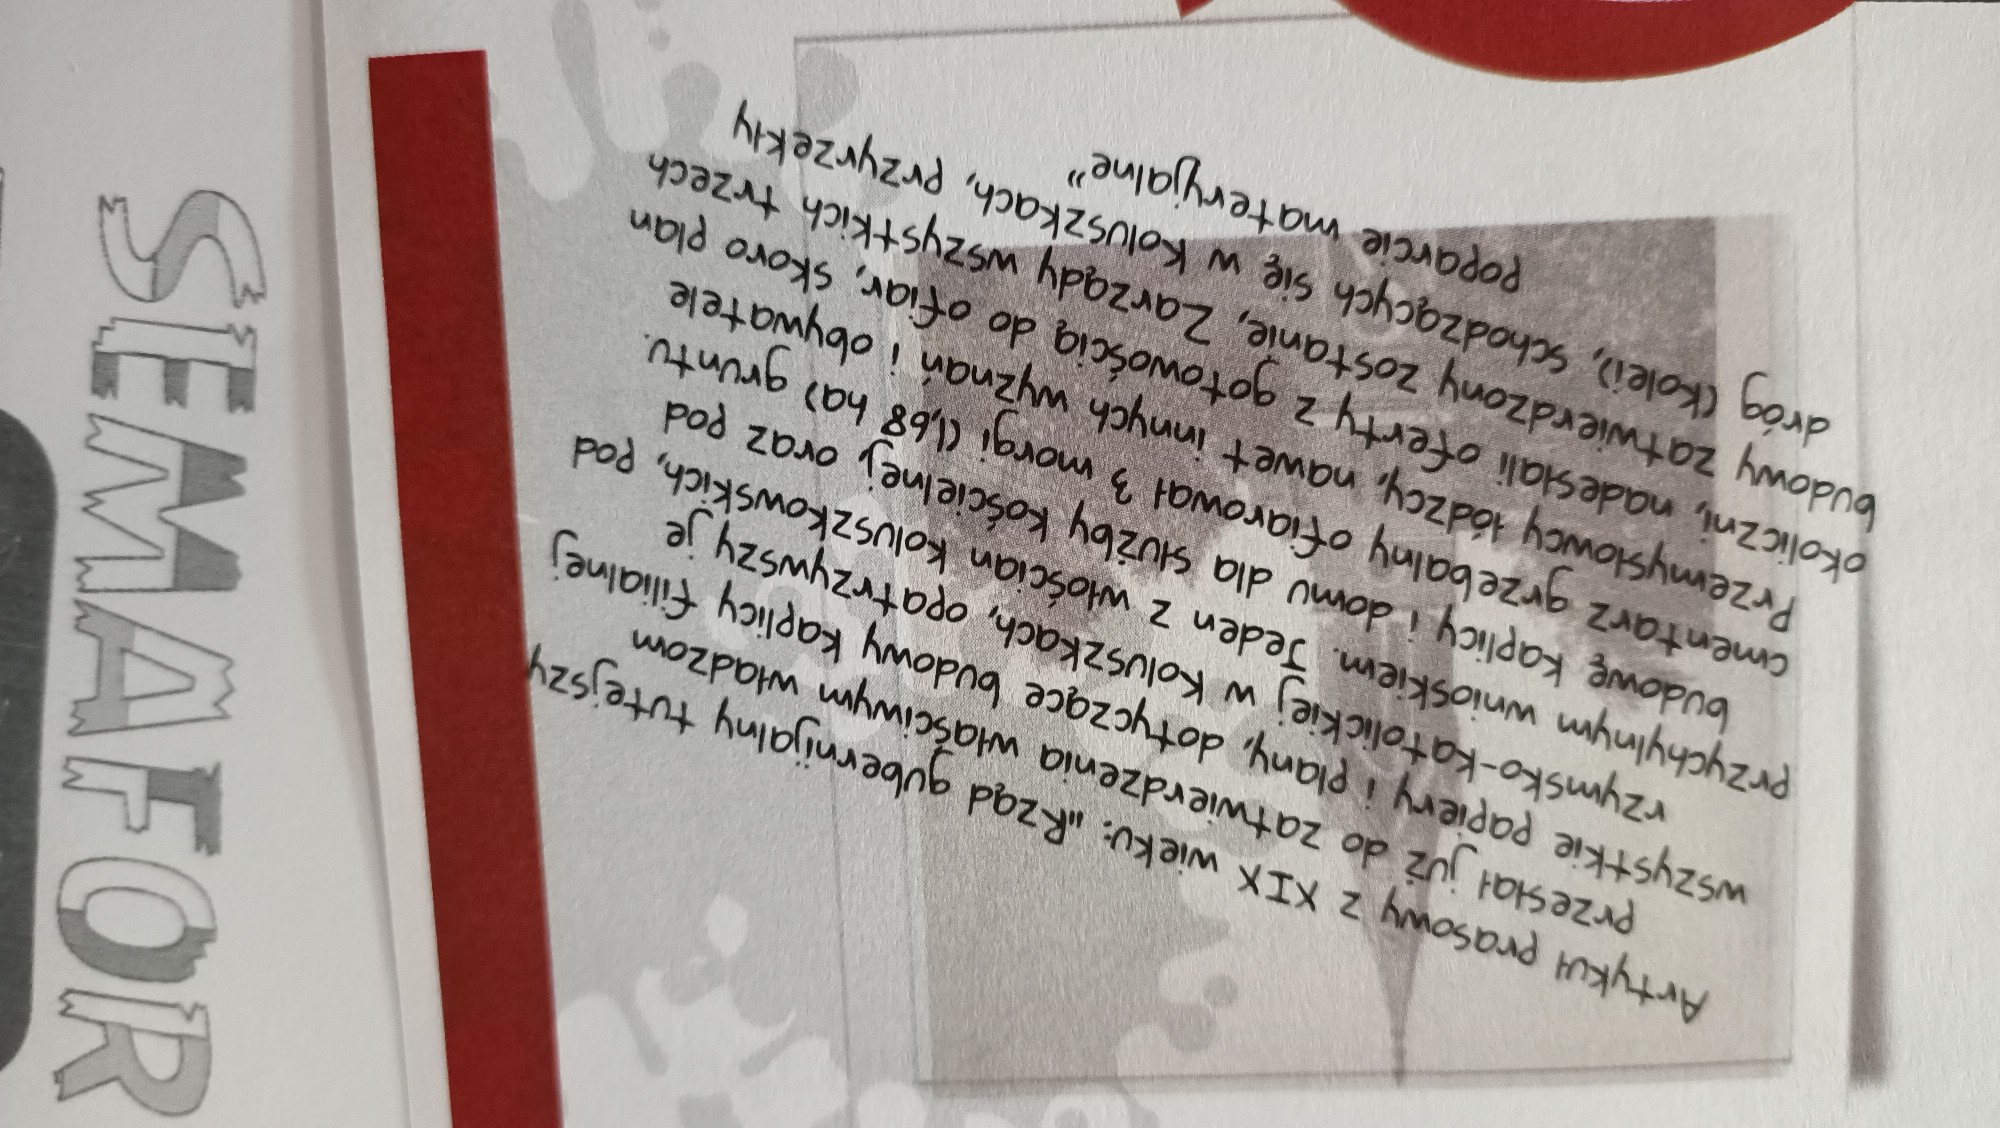 Artykuł prasowy z XIX wieku: „Rząd gubernijalny tutejszy
przesłał już do zatwierdzenia właściwym władzom
wszystkie papiery i plany, dotyczące budowy kaplicy filialnej
rzymsko-katolickiej w Koluszkach, opatrzywszy je
przychylnym wnioskiem. Jeden z włościan koluszkowskich, pod
budowę kaplicy i domu dla służby kościelnej, oraz pod
cmentarz grzebalny ofiarował 3 morgi (1,68 ha) gruntu.
Przemysłowcy łódzcy, nawet innych wyznań i obywatele
okoliczni, nadesłali oferty z gotowością do ofiar, skoro plan
budowy zatwierdzony zostanie, Zarządy wszystkich trzech
dróg (kolei), schodzących się w Koluszkach, przyrzekły
poparcie materyjalne”
SEMAFOR